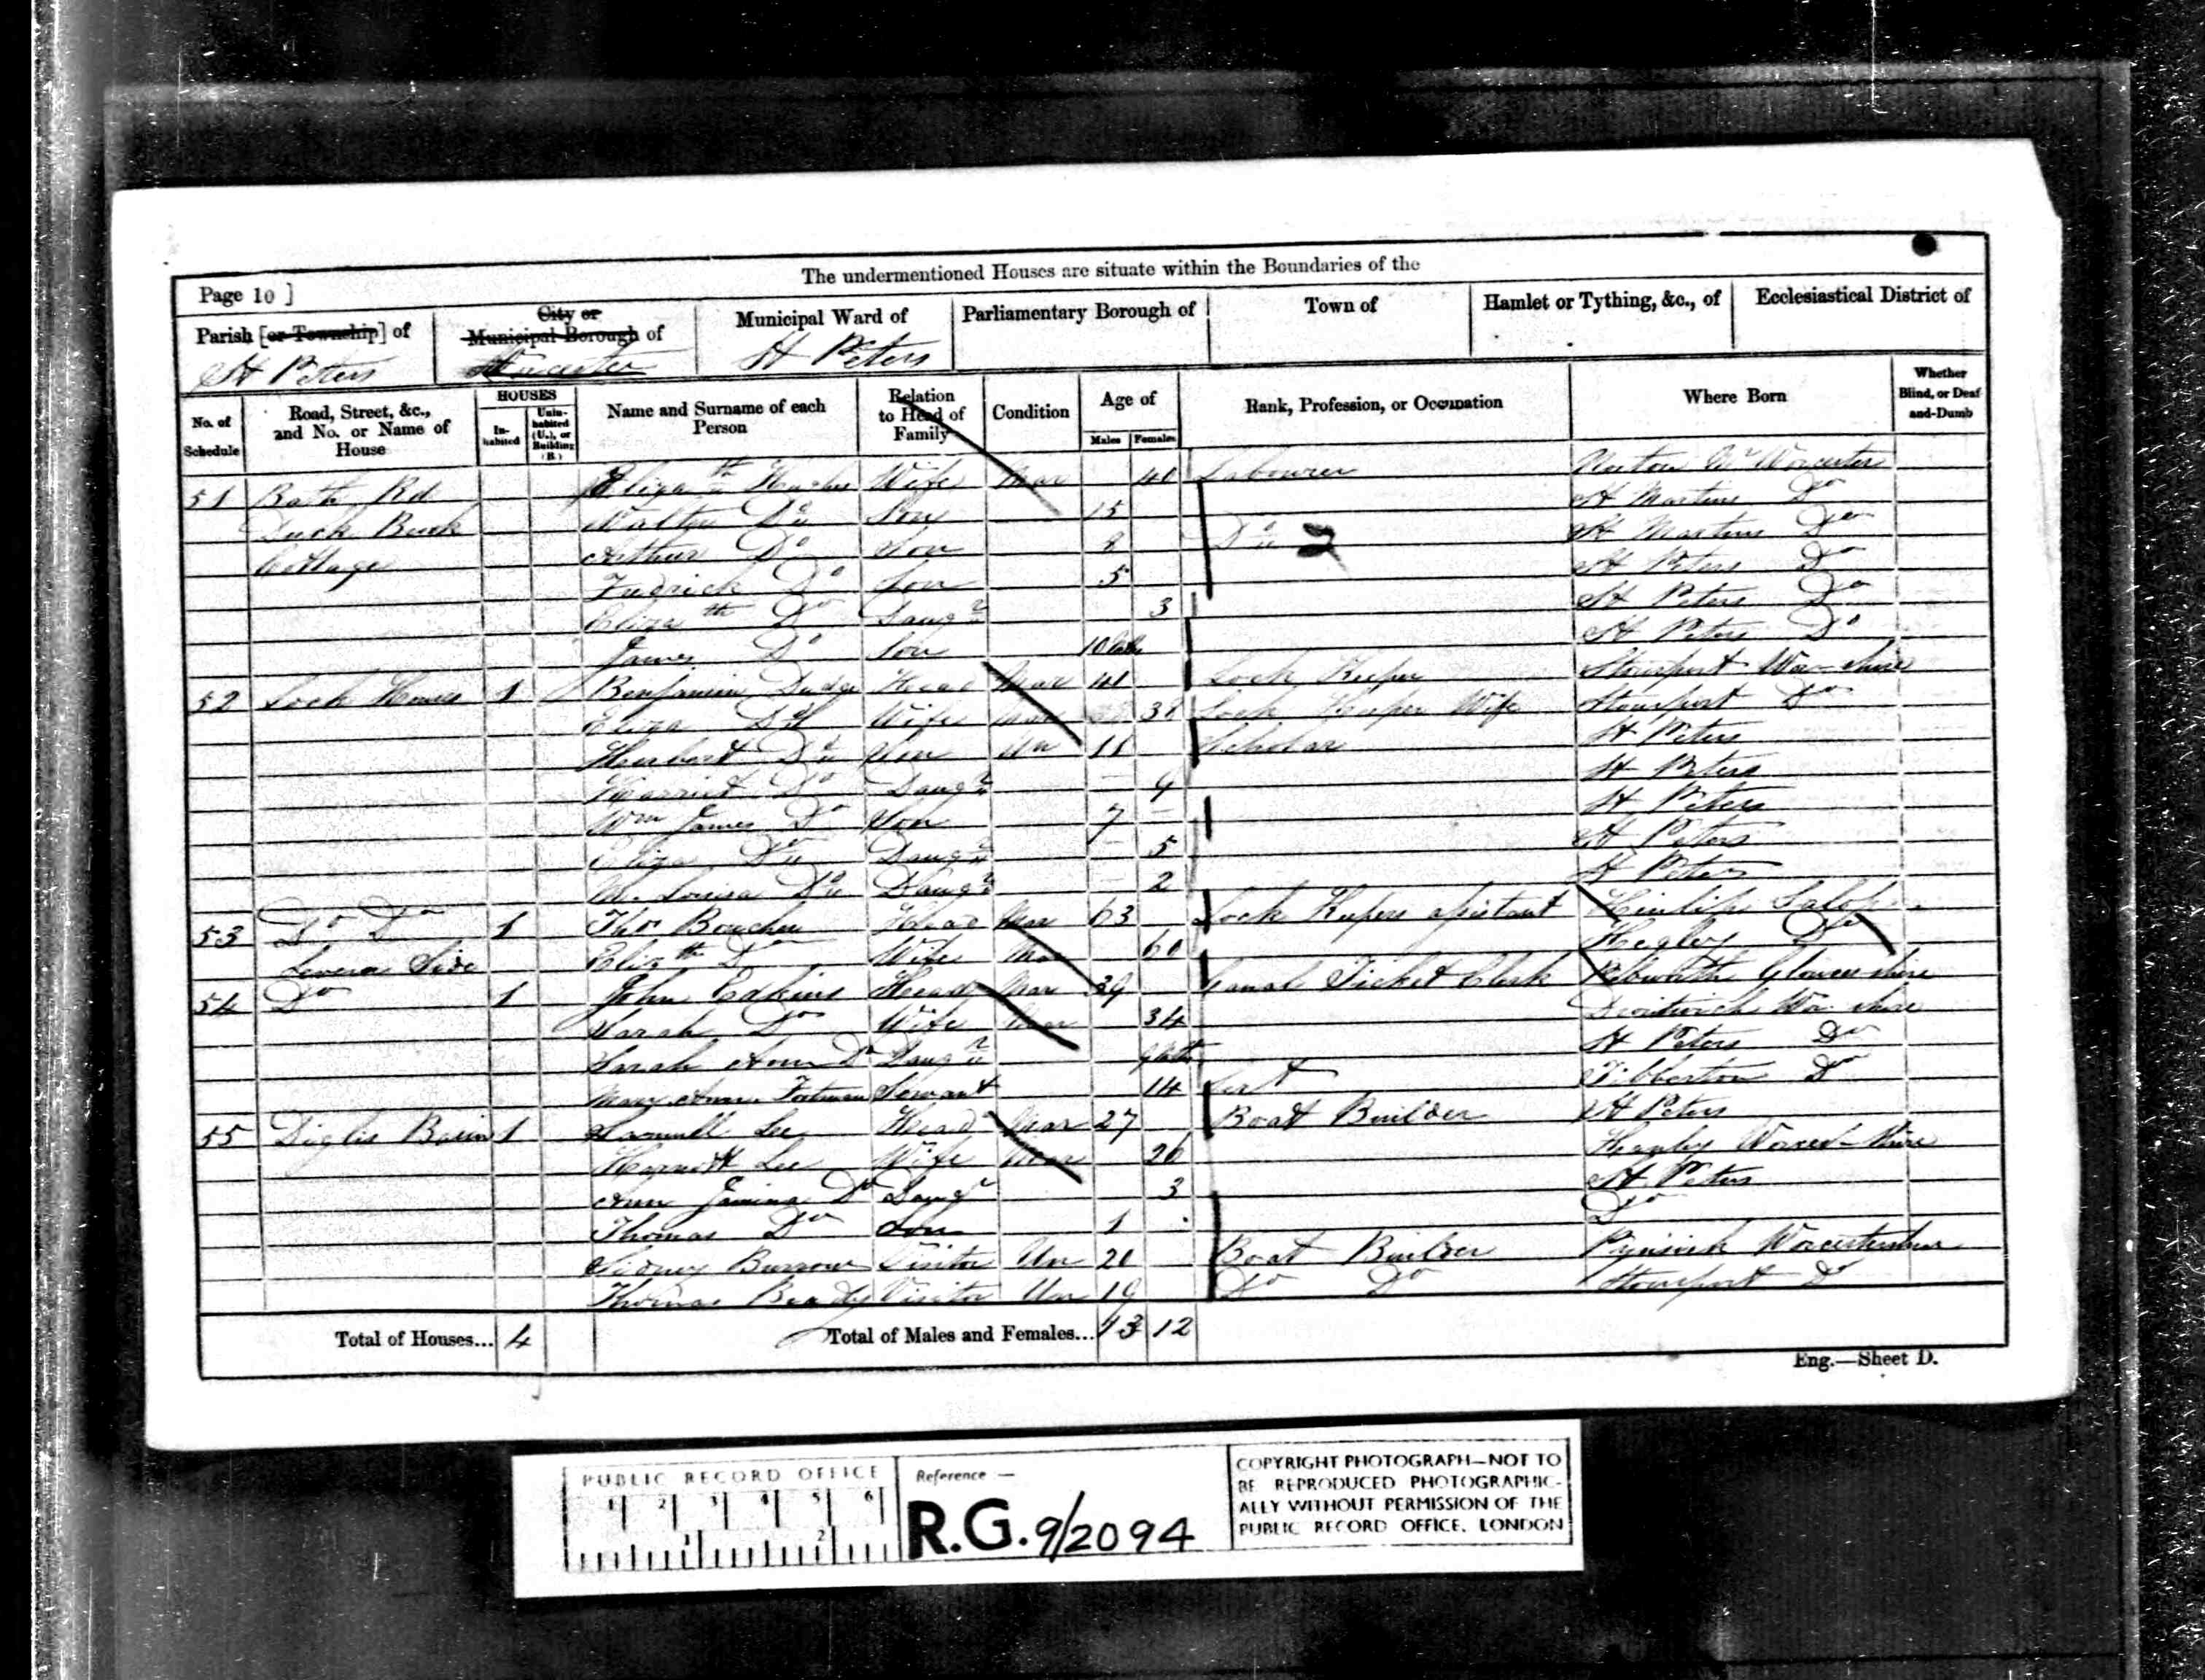 The undermentioned Houses are situate within the Boundaries of the
Page 10 ]
Parish [or Township] of
City or Municipal Borough of
Municipal Ward of
Parliamentary Borough of
Town of
Hamlet or Tything, &c., of
Ecclesiastical District of
St Peters Worcester St Peters
No. of Schedule
Road, Street, &c., and No. or Name of House
HOUSES
In-habited
Unin-habited (U.), or Building (B.)
Name and Surname of each Person
Relation to Head of Family
Condition
Age of
Males Females
Rank, Profession, or Occupation
Where Born
Whether Blind, or Deaf-and-Dumb
51 Bath Rd Elizath Hughes Wife Mar 40 Labourer Norton Nr Worcester
Walter Do Son 15 St Martins Do
Cottage Arthur Do Son 8 Do 2 St Martins Do
Fredrick Do Son 5 St Peters Do
Elizath Do Daugr 3 St Peters Do
James Do Son 10 St Peters Do
52 Lock House 1 Benjamin Dudge Head Mar 41 Lock Keeper Stourport Wor-shire
Eliza Do Wife Mar 38 Lock Keeper Wife Stourport Do
Herbert Do Son Un 11 Scholar St Peters
Harriet Do Daugr 9 St Peters
Wm James Do Son 7 St Peters
Eliza Do Daugr 5 St Peters
Louisa Do Daugr 2 St Peters
53 Do Do 1 Thos Head Mar 63 Lock Keepers assistant Hinlip Salop
Severn Side Elizth Do Wife Mar 60 Hegley Do
54 Do 1 John Edkins Head Mar 29 Canal Ticket Clerk Pebworth Gloucershire
Sarah Do Wife Mar 34 Droitwich Wor-shire
Sarah Ann Do Daugr 9 St Peters Do
Mary Ann Servant 14 Servt Tibberton Do
55 Diglis Basin 1 Samuell Lee Head Mar 27 Boat Builder St Peters
Harriett Lee Wife Mar 26 Hanley Worcest-shire
Ann Jamima Do Daugr 3 St Peters
Thomas Do Son 1 Do
Sidney Burrow Visitor Un 20 Boat Builder Worcestershire
Thomas Visitor Un 19 Do Do Stourport Do
Total of Houses... 4
Total of Males and Females... 13 12
Eng.—Sheet D.
PUBLIC RECORD OFFICE
1 2 3 4 5 6
1 2
Reference —
R.G. 9/2094
COPYRIGHT PHOTOGRAPH—NOT TO
BE REPRODUCED PHOTOGRAPHIC-
ALLY WITHOUT PERMISSION OF THE
PUBLIC RECORD OFFICE, LONDON